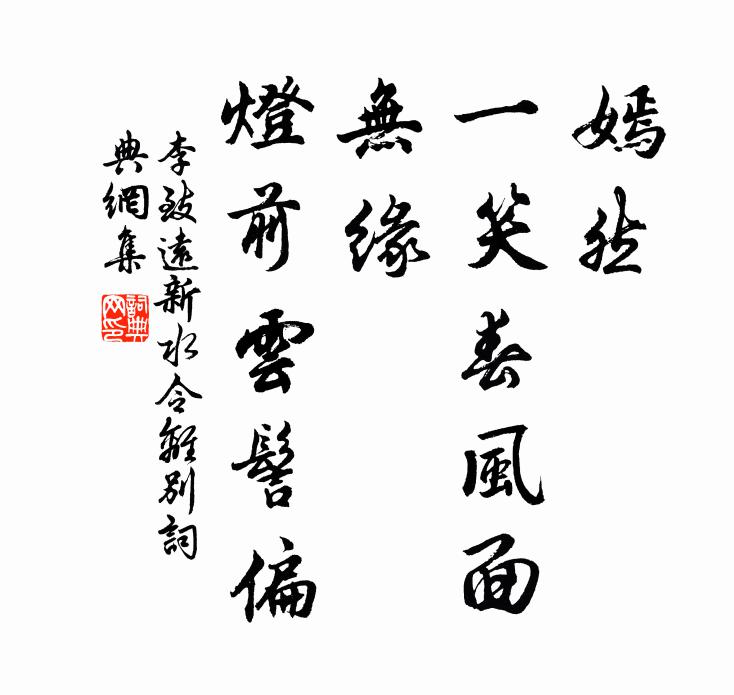 嫣然
一笑春風面
無緣
燈前雲髻偏
李致遠新水令離別詞
典網集
詞典网印